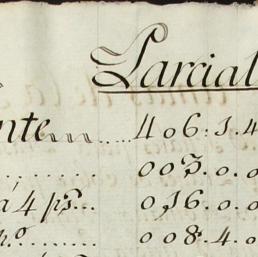 Parcial
nte...... 406.1.4
......... 003.0.0
á 4 ps... 016.0.0
p.º...... 008.4.0